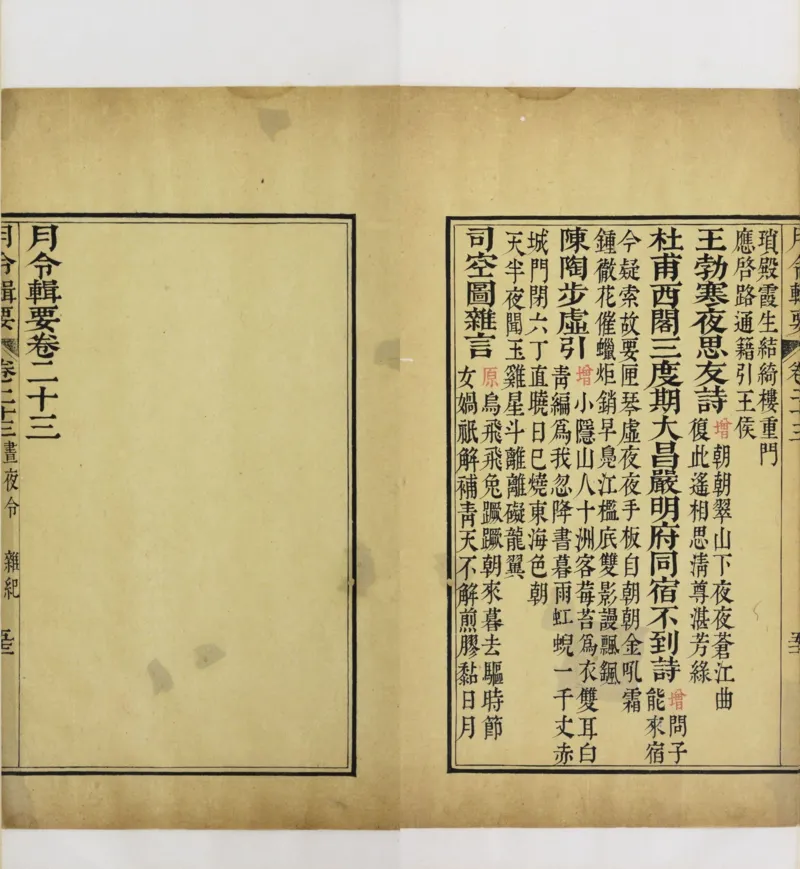 瑣殿霞生結綺樓重門
應啓路通籍引王侯
王勃寒夜思友詩
增朝朝翠山下夜夜蒼江曲
復此遙相思淸尊湛芳綠
杜甫西閣三度期大昌嚴明府同宿不到詩
增問子
能來宿
今疑索故要匣琴虛夜夜手板自朝朝金吼霜
鍾徹花催蠟炬銷早鳧江檻底雙影謾飄颻
陳陶步虛引
增小隱山人十洲客莓苔爲衣雙耳白
靑編爲我忽降書暮雨虹蜺一千丈赤
城門閉六丁直曉日已燒東海色朝
天半夜聞玉雞星斗離離礙龍翼
司空圖雜言
原烏飛飛兔蹶蹶朝來暮去驅時節
女媧祇解補靑天不解煎膠黏日月
月令輯要卷二十三
月令輯要 卷二十三 晝夜令 雜紀